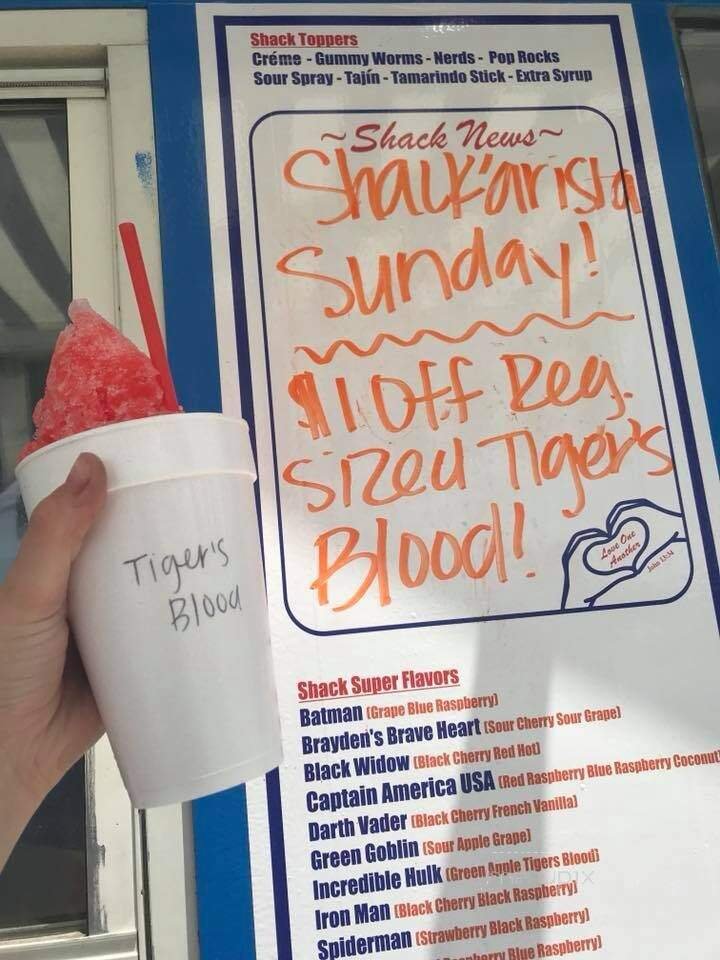 Shack Toppers
Créme - Gummy Worms - Nerds - Pop Rocks
Sour Spray - Tajín - Tamarindo Stick - Extra Syrup
~Shack News~
Shack'arista
Sunday!
$1 Off Reg.
Sized Tiger's
Blood!
Love One
Another
John 13:34
Tiger's
Blood
Shack Super Flavors
Batman (Grape Blue Raspberry)
Brayden's Brave Heart (Sour Cherry Sour Grape)
Black Widow (Black Cherry Red Hot)
Captain America USA (Red Raspberry Blue Raspberry Coconut
Darth Vader (Black Cherry French Vanilla)
Green Goblin (Sour Apple Grape)
Incredible Hulk (Green Apple Tigers Blood)
Iron Man (Black Cherry Black Raspberry)
Spiderman (Strawberry Black Raspberry)
Blue Raspberry)